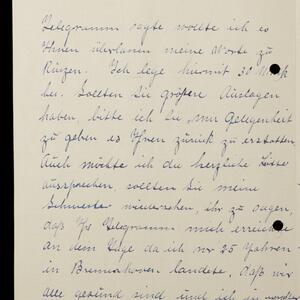 Telegramm sagte wollte ich es
Ihnen überlassen meine Worte zu
Kürzen. Ich lege hiermit 30 Mark
bei. Sollten Sie größere Auslagen
haben, bitte ich Sie, mir Gelegenheit
zu geben es Ihnen zurück zu erstatten.
Auch möchte ich die herzliche Bitte
aussprechen, sollten Sie meine
Schwester wiedersehen, ihr zu sagen,
daß Ihr Telegramm mich erreichte
an dem Tage da ich vor 25 Jahren
in Bremerhaven landete, daß wir
alle gesund sind und daß in